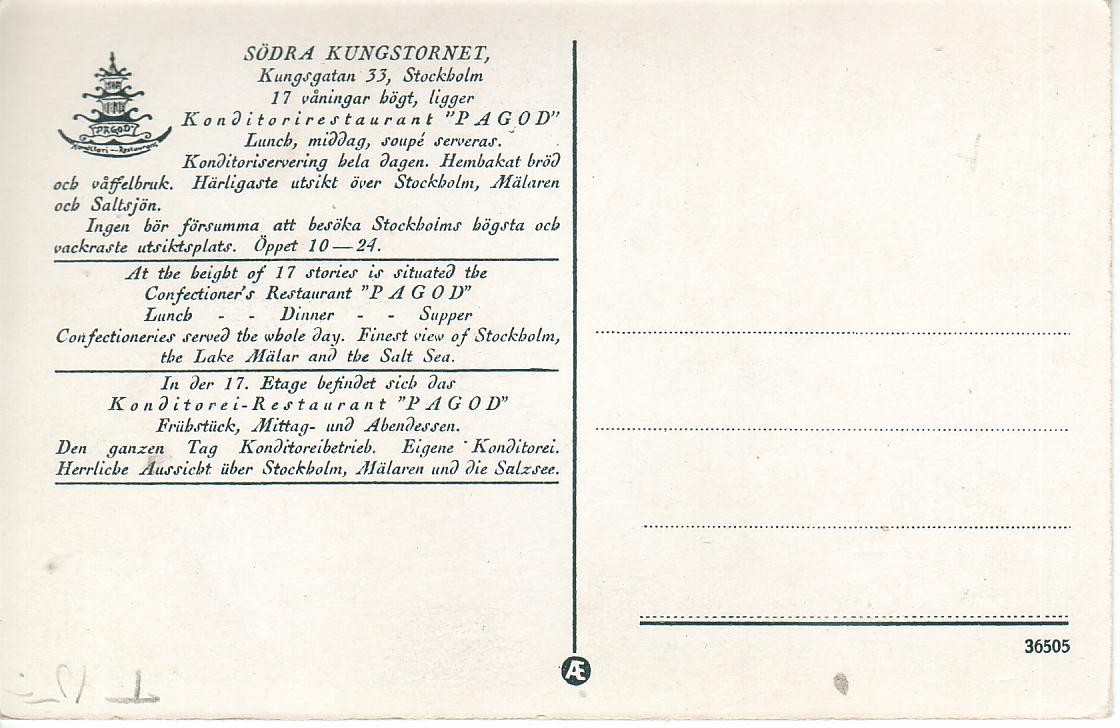 SÖDRA KUNGSTORNET,
Kungsgatan 33, Stockholm
17 våningar högt, ligger
Konditorirestaurant "PAGOD"
Lunch, middag, soupé serveras.
Konditoriservering hela dagen. Hembakat bröd
och våffelbruk. Härligaste utsikt över Stockholm, Mälaren
och Saltsjön.
Ingen bör försumma att besöka Stockholms högsta och
vackraste utsiktsplats. Öppet 10—24.
PAGOD
Konditori—Restaurant
At the height of 17 stories is situated the
Confectioner's Restaurant "PAGOD"
Lunch - - Dinner - - Supper
Confectioneries served the whole day. Finest view of Stockholm,
the Lake Mälar and the Salt Sea.
In der 17. Etage befindet sich das
Konditorei-Restaurant "PAGOD"
Frühstück, Mittag- und Abendessen.
Den ganzen Tag Konditoreibetrieb. Eigene Konditorei.
Herrliche Aussicht über Stockholm, Mälaren und die Salzsee.
Æ
36505